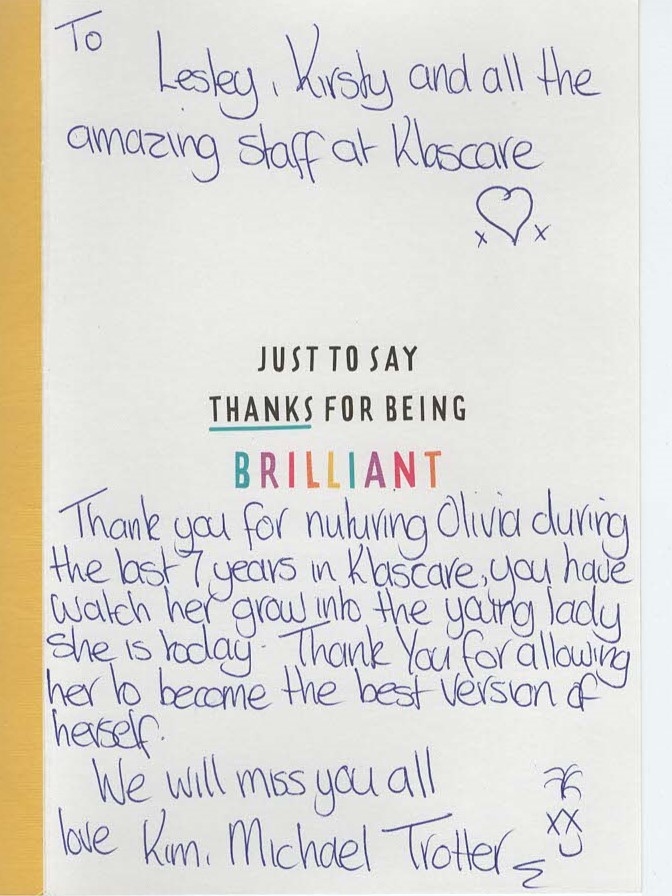 To
Lesley, Kirsty and all the
amazing staff at Klascare
x x
JUST TO SAY
THANKS FOR BEING
BRILLIANT
Thank you for nuturing Olivia during
the last 7 years in Klascare, you have
watch her grow into the young lady
she is today. Thank You for allowing
her to become the best version of
herself.
We will miss you all
love Kim, Michael Trotter
xx